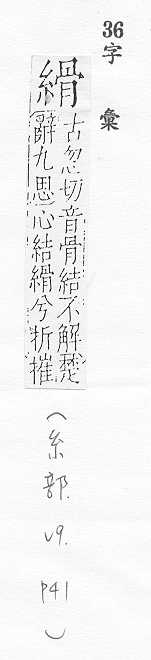 36
字彙
縎 古忽切音骨結不解楚
辭九思心結縎兮折摧
(糸部. v9. P41)